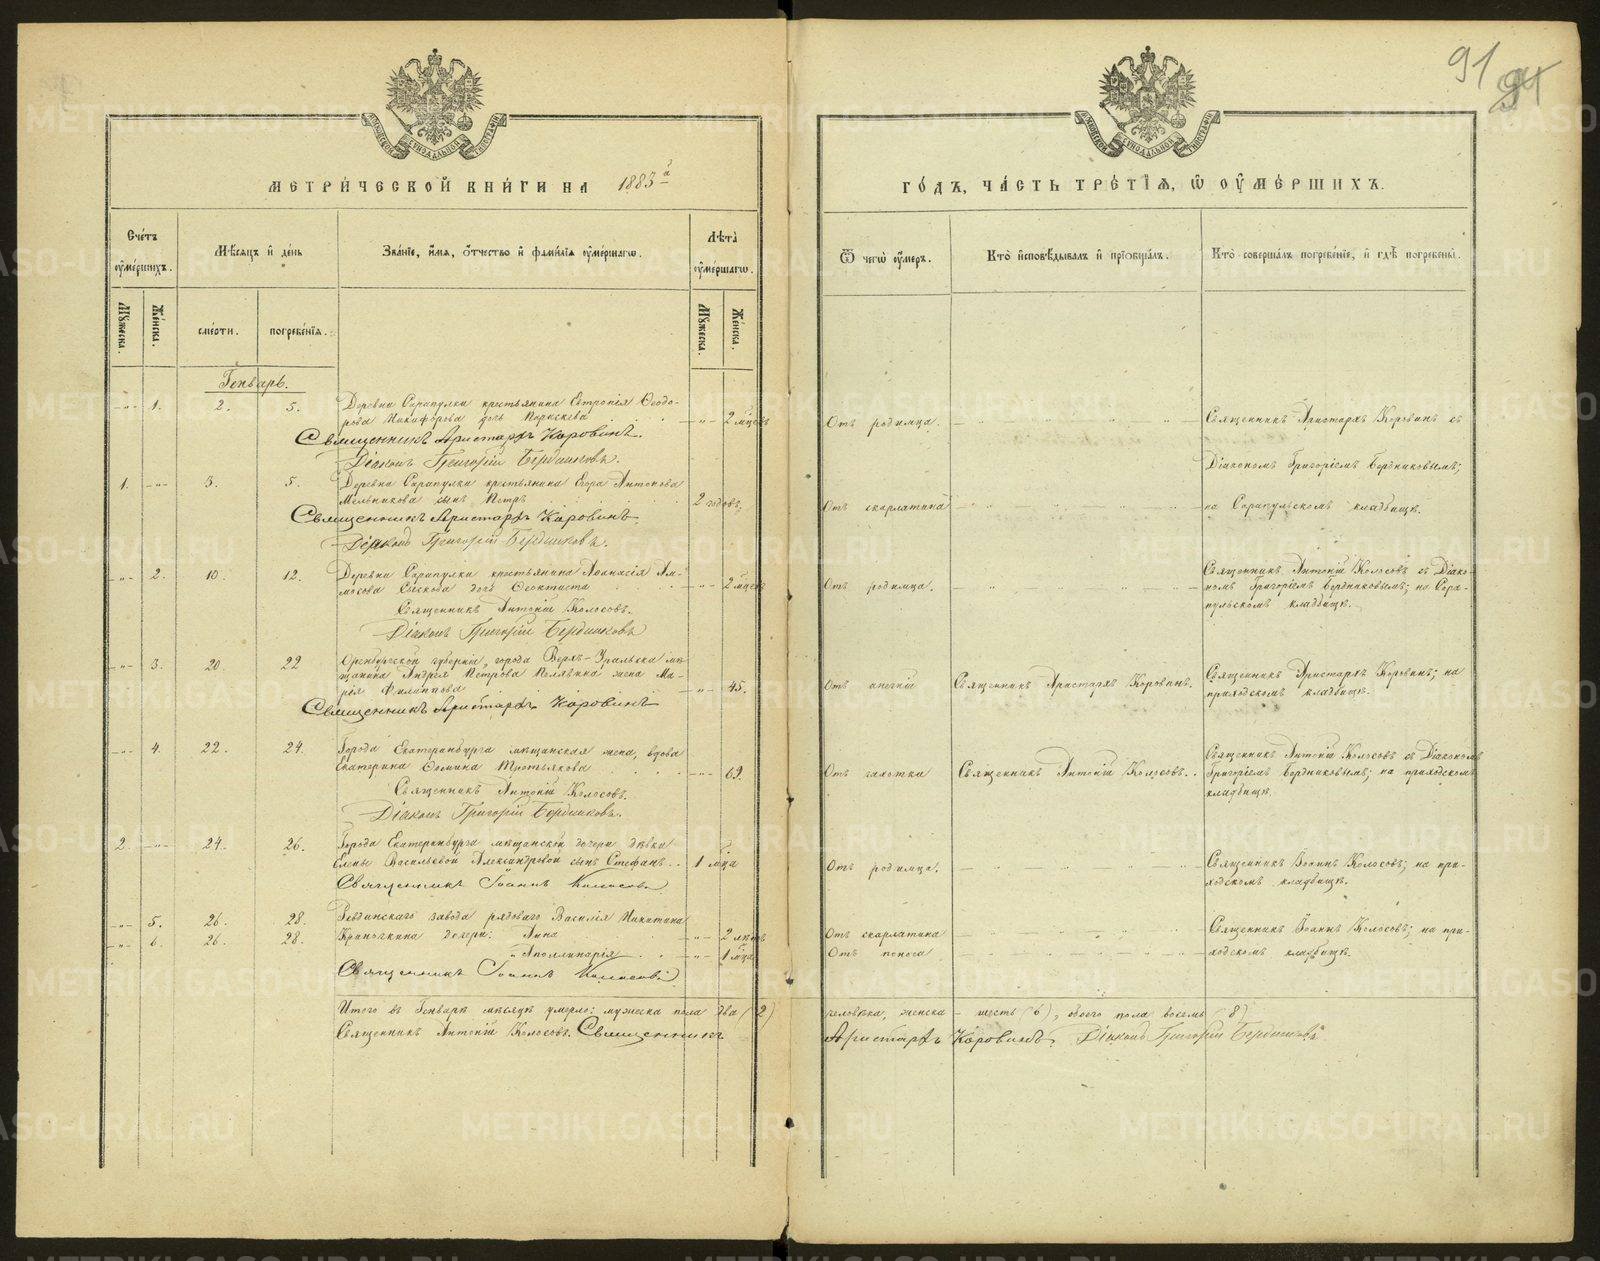 91 94
МЕТРИ́ЧЕСКОЙ КНИ́ГИ НА 1883й
ГО́ДЪ, ЧА́СТЬ ТРЕ́ТІЯ, Ѿ ОУ҆МЕ́РШИХЪ.
Сче́тъ оу҆ме́ршихъ.
Мѣ́сяцъ и҆ де́нь
Зва́ніе, и҆́мя, ѻ҆́тчество и҆ фами́лія оу҆ме́ршагѡ.
Лѣ́та оу҆ме́ршагѡ.
Ѿ чегѡ̀ оу҆́меръ.
Кто̀ и҆сповѣ́дывалъ и҆ пріѻбща́лъ.
Кто̀ соверша́лъ погребе́ніе, и҆ гдѣ̀ погребены̀.
Мꙋ́жеска.
Же́нска.
сме́рти.
погребе́нія.
Мꙋ́жеска.
Же́нска.
Генварь.
-"- 1. 2. 5. Деревни Сарапулки крестьянина Евтропія Ѳеодо-
рова Никифорова дочь Параскева -"- 2 мцевъ
Священникъ Аристархъ Коровинъ.
Діаконъ Григорій Бердниковъ.
Отъ родимца.
Священникъ Аристархъ Коровинъ съ
Діакономъ Григоріемъ Бердниковымъ;
1. -"- 3. 5. Деревни Сарапулки крестьянина Егора Антонова
Мельникова сынъ Петръ 2 годовъ,
Священникъ Аристархъ Коровинъ.
Діаконъ Григорій Бердниковъ.
Отъ скарлатина
на Сарапульскомъ кладбищѣ.
-"- 2. 10. 12. Деревни Сарапулки крестьянина Аѳанасія Ам-
мосова дочь Ѳеоктиста -"- 2 мцевъ
Священникъ Антоній Колосовъ.
Діаконъ Григорій Бердниковъ
Отъ родимца.
Священникъ Антоній Колосовъ съ Діако-
номъ Григоріемъ Бердниковымъ; на Сара-
пульскомъ кладбищѣ.
-"- 3. 20. 22 Оренбургской губерніи, города Верх-Уральска мѣ-
щанина Андрея Петрова жена Ма-
рія Филиппова -"- 45.
Священникъ Аристархъ Коровинъ
Отъ
Священникъ Аристархъ Коровинъ.
Священникъ Аристархъ Коровинъ; на
приходскомъ кладбищѣ.
-"- 4. 22. 24. Города Екатеринбурга мѣщанская жена, вдова
Екатерина Ѳомина Третьякова -"- 69.
Священникъ Антоній Колосовъ.
Діаконъ Григорій Бердниковъ.
Отъ чахотки
Священникъ Антоній Колосовъ.
Священникъ Антоній Колосовъ съ Діакономъ
Григоріемъ Бердниковымъ; на приходскомъ
кладбищѣ.
2. -"- 24. 26. Города Екатеринбурга мѣщанской дочери дѣвки
Елены Васильевой Александровой сынъ Стефанъ 1 мца
Священникъ Іоаннъ Колосовъ
Отъ родимца.
Священникъ Іоаннъ Колосовъ; на при-
ходскомъ кладбищѣ.
-"- 5. 26. 28. Ревдинскаго завода рядоваго Василія Никитина
-"- 6. 26. 28. дочери: Анна -"- 2 лѣтъ
" Аполлинарія -"- 1 мца
Священникъ Іоаннъ Колосовъ
Отъ скарлатина
Отъ поноса
Священникъ Іоаннъ Колосовъ; на при-
ходскомъ кладбищѣ.
Итого въ Генварѣ мѣсяцѣ умерло: мужеска пола два (2) человѣка, женска – шесть (6), обоего пола восемь (8)
Священникъ Антоній Колосовъ. Священникъ Аристархъ Коровинъ. Діаконъ Григорій Бердниковъ
METRIKI.GASO-URAL.RU